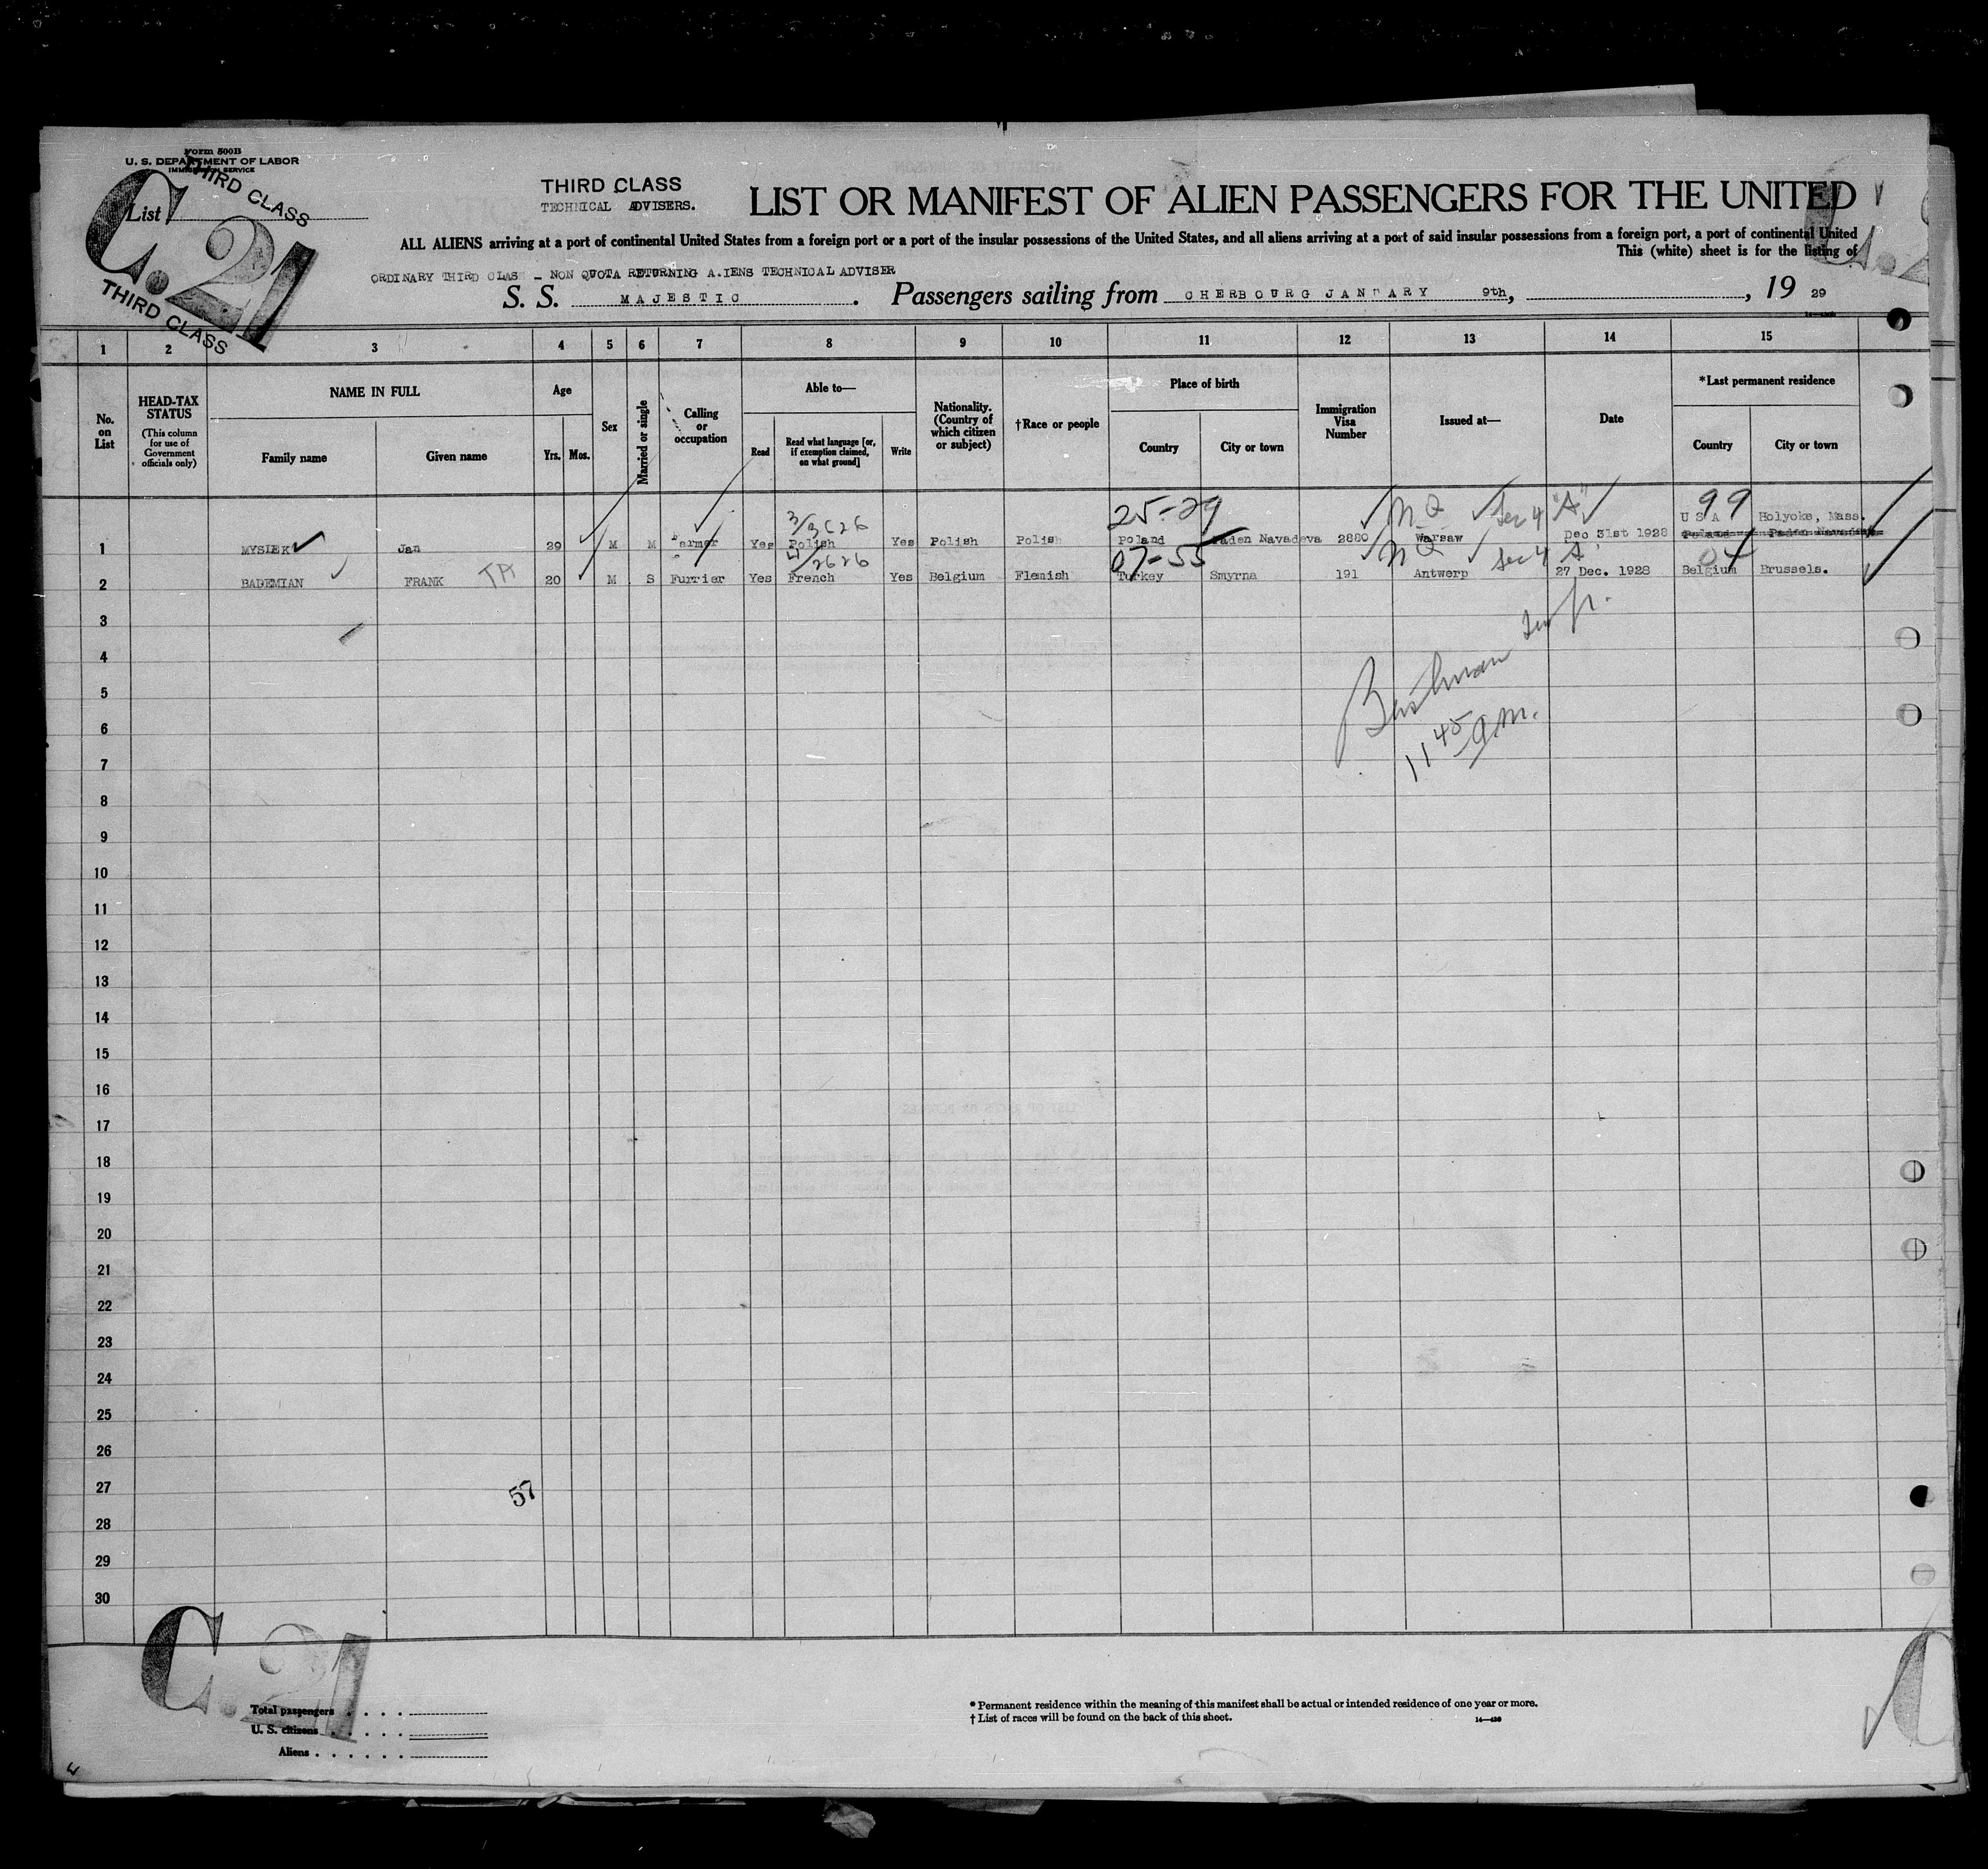 Form 500B
U. S. DEPARTMENT OF LABOR
IMMIGRATION SERVICE
THIRD CLASS
List
C.21
THIRD CLASS
THIRD CLASS
TECHNICAL ADVISERS.
LIST OR MANIFEST OF ALIEN PASSENGERS FOR THE UNITED
ALL ALIENS arriving at a port of continental United States from a foreign port or a port of the insular possessions of the United States, and all aliens arriving at a port of said insular possessions from a foreign port, a port of continental United
This (white) sheet is for the listing of
ORDINARY THIRD CLAS – NON QUOTA RETURNING A.IENS TECHNICAL ADVISER
S. S. MAJESTIC . Passengers sailing from CHERBOURG JANUARY 9th, , 19 29
1 2 3 4 5 6 7 8 9 10 11 12 13 14 15
No. on List
HEAD-TAX STATUS
(This column for use of Government officials only)
NAME IN FULL
Family name
Given name
Age
Yrs. Mos.
Sex
Married or single
Calling or occupation
Able to—
Read
Read what language [or, if exemption claimed, on what ground]
Write
Nationality. (Country of which citizen or subject)
†Race or people
Place of birth
Country
City or town
Immigration Visa Number
Issued at—
Date
*Last permanent residence
Country
City or town
3/3626 25-29 N.Q. Sec 4 "A" 99
U S A Holyoke, Mass.
1 MYSIEK Jan 29 M M Farmer Yes Polish Yes Polish Polish Poland Paden Navadeva 2880 Warsaw Dec 31st 1928 Poland
4/2626 07-55 NQ Sec 4 A 04
2 BADEMIAN FRANK 20 M S Furrier Yes French Yes Belgium Flemish Turkey Smyrna 191 Antwerp 27 Dec. 1928 Belgium Brussels.
3
4
5
6
11 45 am.
7
8
9
10
11
12
13
14
15
16
17
18
19
20
21
22
23
24
25
26
27
57
28
29
30
C.21
Total passengers
U. S. citizens
Aliens
* Permanent residence within the meaning of this manifest shall be actual or intended residence of one year or more.
† List of races will be found on the back of this sheet.